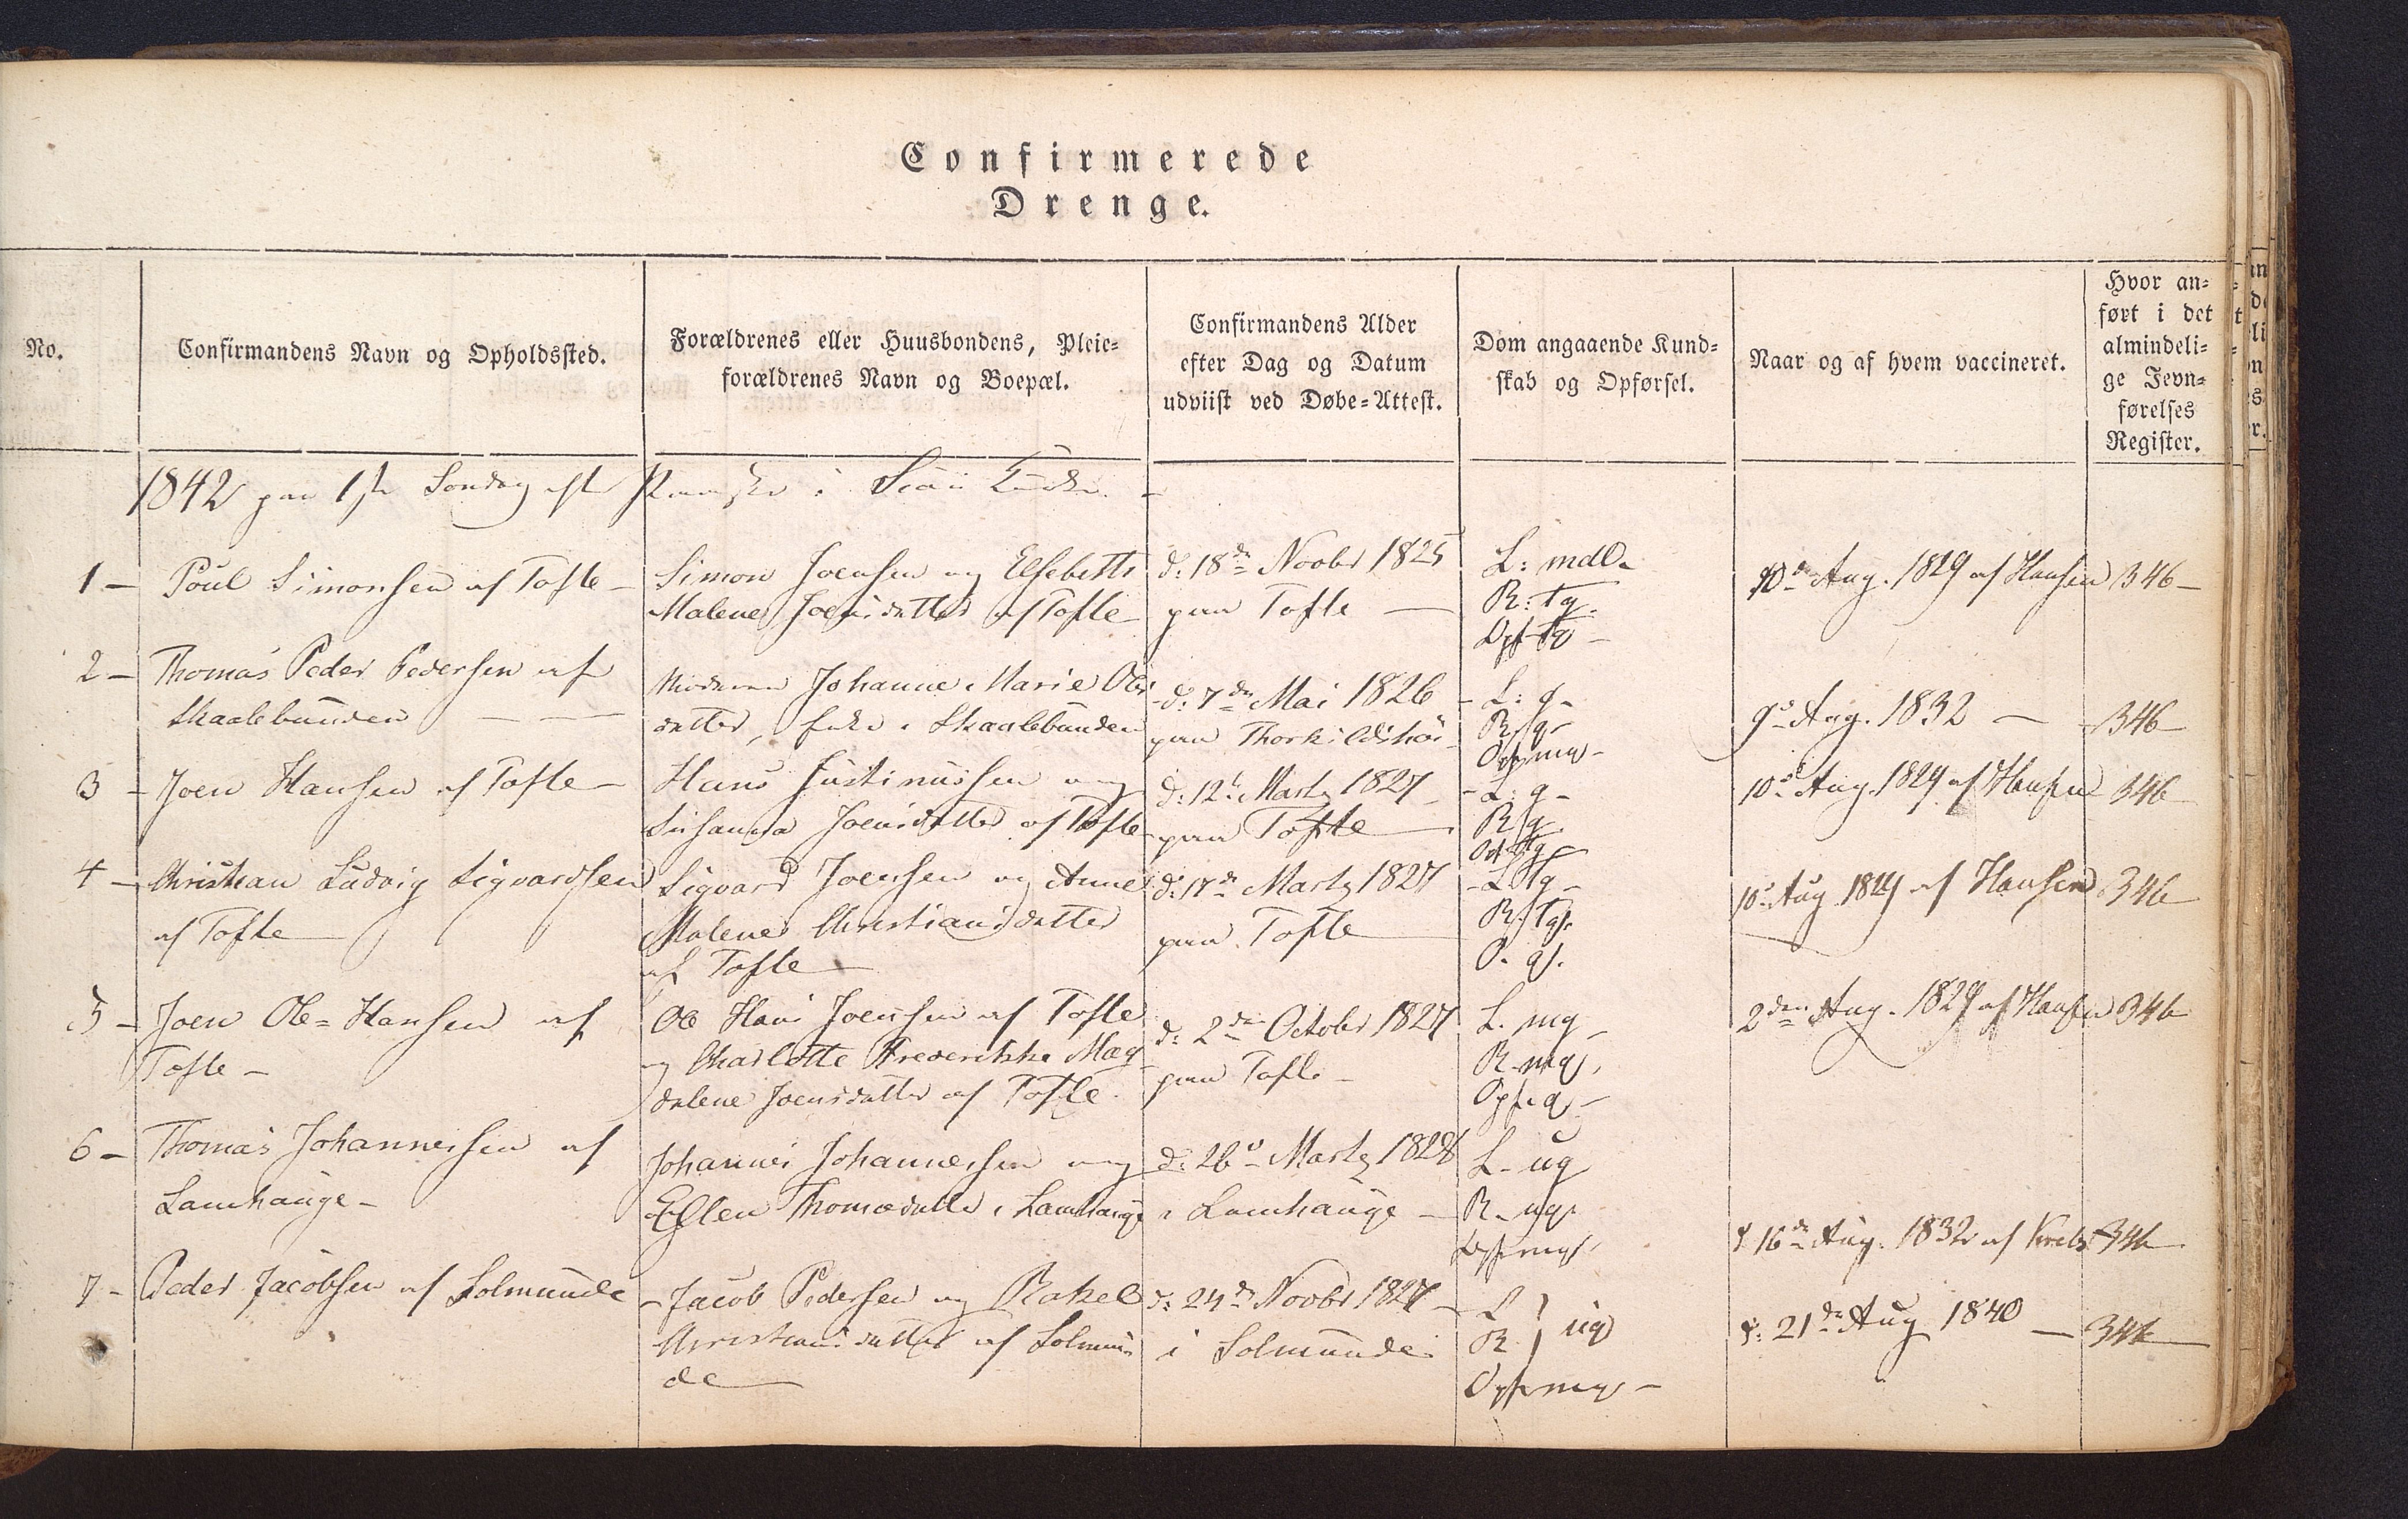 Confirmerede
Drenge.
No.
Confirmandens Navn og Opholdssted.
Forældrenes eller Huusbondens, Pleie-
forældrenes Navn og Boepæl.
Confirmandens Alder
efter Dag og Datum
udviist ved Døbe-Attest.
Dom angaaende Kund-
skab og Opførsel.
Naar og af hvem vaccineret.
Hvor an-
ført i det
almindeli-
ge Jevn-
førelses
Register.
1842 paa 1ste Søndag efter Paaske i
1 - Poul Simonsen af Tofte -
Simon Joensen og Elsebeth
Malene Joensdatter af Tofte
d: 18de Novbr 1825
paa Tofte -
L: mdl.
R: tg.
Opf tg -
10de Aug. 1829 af Hansen
346 -
2 - Thomas Peder Pedersen af
Skaalebunden - -
Moderen Johanne Marie Ols
datter, i Skaalebunden
d: 7de Mai 1826
paa
- L: g -
R. g -
Opf mg -
9de Aug. 1832 -
346
3 - Joen Hansen af Tofte -
Hans Justinussen og
Susanna Joensdatter af Tofte
d: 12te Marts 1827
paa Tofte -
- L: g -
R. g.
Opf tg -
10de Aug. 1829 af Hansen
346
4 - Christian Ludvig Sigvardsen
af Tofte
Sigvard Joensen og Anne
Malene Christiansdatter
af Tofte
d: 17de Marts 1827
paa Tofte
- L. tg -
R. tg.
O. g.
10de Aug. 1829 af Hansen
346
5 - Joen Ole-Hansen af
Tofte -
Ole Hans Joensen af Tofte
og Charlotte Frederikke Mag
dalene Joensdatter af Tofte.
d: 2den October 1827
paa Tofte -
L. mg -
R. mg.
Opf. g -
2den Aug. 1829 af Hansen
346
6 - Thomas Johannessen af
Lamhauge -
Johannes Johannessen og
Ellen Thomasdatter i Lamhauge
d: 26de Marts 1828
i Lamhauge -
L. ug
R. ug.
Opf mg.
d 16de Aug. 1832 af
346
7 - Peder Jacobsen af Solmunde
- Jacob Pedersen og Rakel
Christiansdatter af Solmun-
de
d: 24de Novbr 1827 -
i Solmunde
L } ug
R. }
Opf mg -
d: 21de Aug 1840 -
346